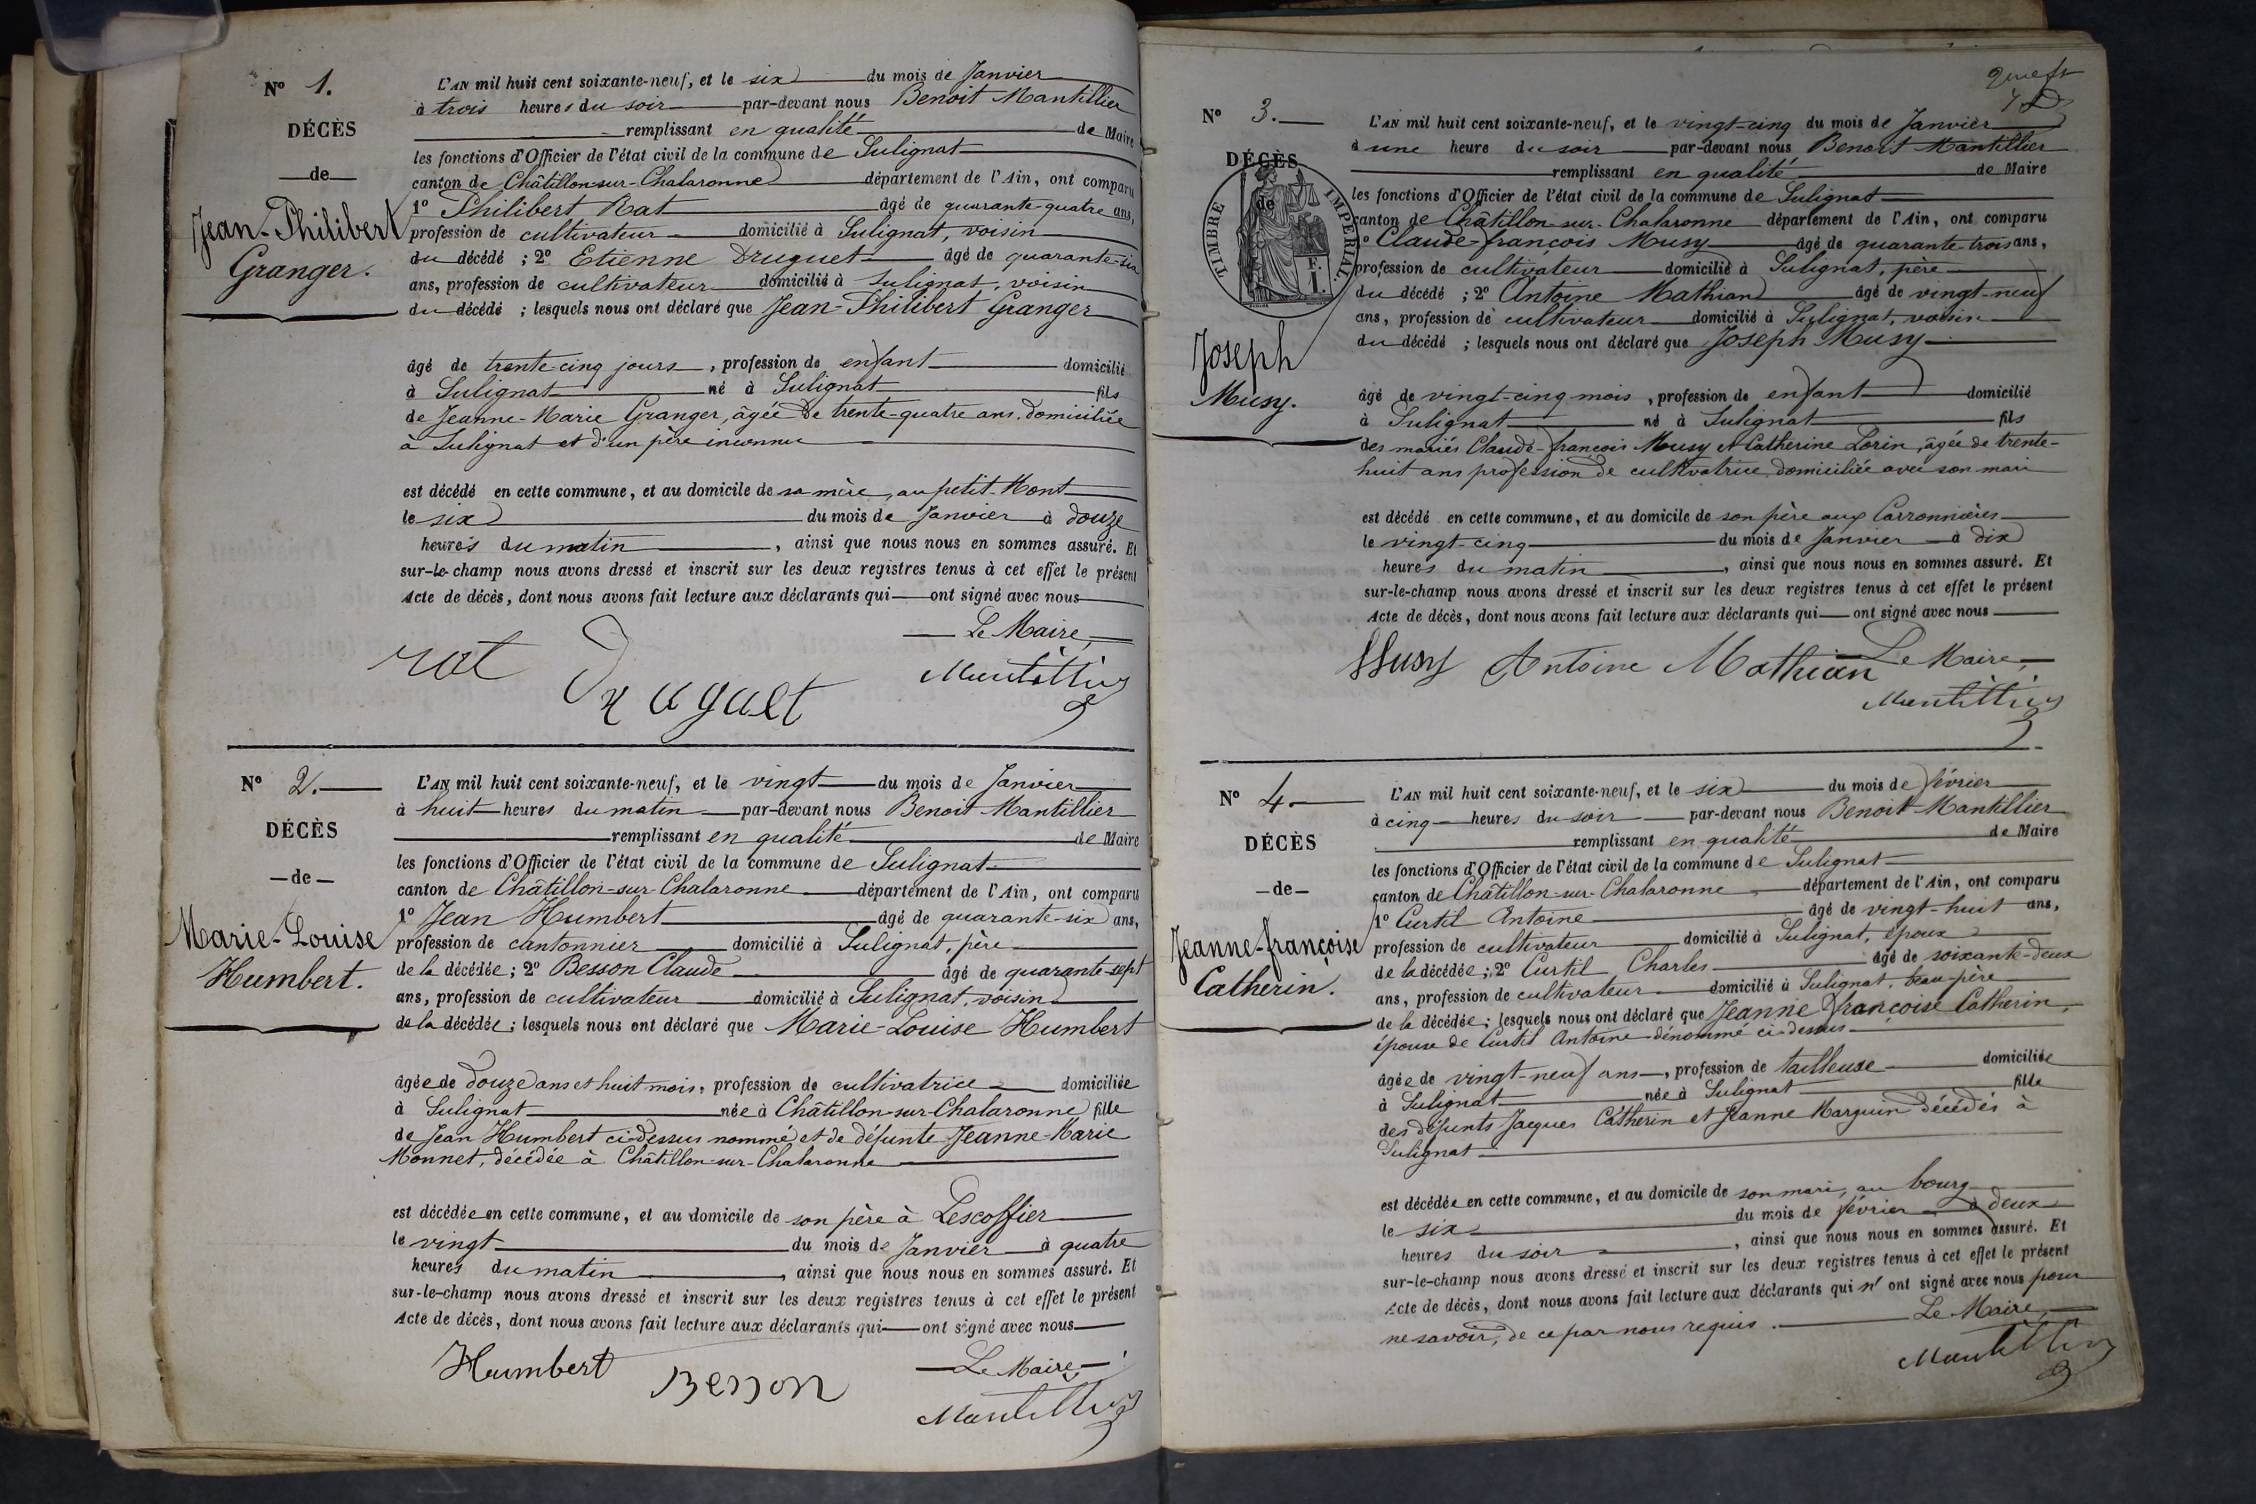 N° 1.
DÉCÈS
de
Jean-Philibert
Granger.
L'AN mil huit cent soixante-neuf, et le six du mois de Janvier
à trois heures du soir par-devant nous Benoit Mantillier
remplissant en qualité de Maire
les fonctions d'Officier de l'état civil de la commune de Sulignat
canton de Châtillon-sur-Chalaronne département de l'Ain, ont comparu
1° Philibert Rat âgé de quarante-quatre ans,
profession de cultivateur domicilié à Sulignat, voisin
du décédé ; 2° Etienne Druguet âgé de quarante-six
ans, profession de cultivateur domicilié à Sulignat, voisin
du décédé ; lesquels nous ont déclaré que Jean-Philibert Granger
âgé de trente-cinq jours, profession de enfant domicilié
à Sulignat né à Sulignat fils
de Jeanne-Marie Granger, âgée de trente-quatre ans, domiciliée
à Sulignat et d'un père inconnu
est décédé en cette commune, et au domicile de sa mère, au petit-Mont
le six du mois de Janvier à douze
heures du matin, ainsi que nous nous en sommes assuré. Et
sur-le-champ nous avons dressé et inscrit sur les deux registres tenus à cet effet le présent
Acte de décès, dont nous avons fait lecture aux déclarants qui ont signé avec nous
Le Maire,
rat Druguet Mantillier
N° 2.
DÉCÈS
de
Marie-Louise
Humbert.
L'AN mil huit cent soixante-neuf, et le vingt du mois de Janvier
à huit heures du matin par-devant nous Benoit Mantillier
remplissant en qualité de Maire
les fonctions d'Officier de l'état civil de la commune de Sulignat
canton de Châtillon-sur-Chalaronne département de l'Ain, ont comparu
1° Jean Humbert âgé de quarante-six ans,
profession de cantonnier domicilié à Sulignat, père
de la décédée ; 2° Besson Claude âgé de quarante-sept
ans, profession de cultivateur domicilié à Sulignat, voisin
de la décédée ; lesquels nous ont déclaré que Marie-Louise Humbert
âgée de douze ans et huit mois, profession de cultivatrice domiciliée
à Sulignat née à Châtillon-sur-Chalaronne fille
de Jean Humbert ci-dessus nommé et de défunte Jeanne-Marie
Monnet, décédée à Châtillon-sur-Chalaronne
est décédée en cette commune, et au domicile de son père à Lescoffier
le vingt du mois de Janvier à quatre
heures du matin, ainsi que nous nous en sommes assuré. Et
sur-le-champ nous avons dressé et inscrit sur les deux registres tenus à cet effet le présent
Acte de décès, dont nous avons fait lecture aux déclarants qui ont signé avec nous
Le Maire,
Humbert Besson Mantillier
N° 3.
DÉCÈS
de
TIMBRE IMPÉRIAL
Joseph
Musy.
L'AN mil huit cent soixante-neuf, et le vingt-cinq du mois de Janvier
à une heure du soir par-devant nous Benoit Mantillier
remplissant en qualité de Maire
les fonctions d'Officier de l'état civil de la commune de Sulignat
canton de Châtillon-sur-Chalaronne département de l'Ain, ont comparu
1° Claude-françois Musy âgé de quarante-trois ans,
profession de cultivateur domicilié à Sulignat, père
du décédé ; 2° Antoine Mathian âgé de vingt-neuf
ans, profession de cultivateur domicilié à Sulignat, voisin
du décédé ; lesquels nous ont déclaré que Joseph Musy
âgé de vingt-cinq mois, profession de enfant domicilié
à Sulignat né à Sulignat fils
des mariés Claude-françois Musy et Catherine Lorin, âgée de trente-
huit ans profession de cultivatrice domiciliée avec son mari
est décédé en cette commune, et au domicile de son père aux Carronnières
le vingt-cinq du mois de Janvier à dix
heures du matin, ainsi que nous nous en sommes assuré. Et
sur-le-champ nous avons dressé et inscrit sur les deux registres tenus à cet effet le présent
Acte de décès, dont nous avons fait lecture aux déclarants qui ont signé avec nous
Le Maire,
Musy Antoine Mathian
Mantillier
N° 4.
DÉCÈS
de
Jeanne-françoise
Catherin.
L'AN mil huit cent soixante-neuf, et le six du mois de février
à cinq heures du soir par-devant nous Benoit Mantillier
remplissant en qualité de Maire
les fonctions d'Officier de l'état civil de la commune de Sulignat
canton de Châtillon-sur-Chalaronne département de l'Ain, ont comparu
1° Curtil Antoine âgé de vingt-huit ans,
profession de cultivateur domicilié à Sulignat, époux
de la décédée ; 2° Curtil Charles âgé de soixante-deux
ans, profession de cultivateur domicilié à Sulignat, beau-père
de la décédée ; lesquels nous ont déclaré que Jeanne françoise Catherin,
épouse de Curtil Antoine dénommé ci-dessus
âgée de vingt-neuf ans, profession de tailleuse domiciliée
à Sulignat née à Sulignat fille
des défunts Jacques Catherin et Jeanne Marguin décédés à
Sulignat
est décédée en cette commune, et au domicile de son mari, au bourg
le six du mois de février à deux
heures du soir, ainsi que nous nous en sommes assuré. Et
sur-le-champ nous avons dressé et inscrit sur les deux registres tenus à cet effet le présent
Acte de décès, dont nous avons fait lecture aux déclarants qui n'ont signé avec nous pour
ne savoir, de ce par nous requis. Le Maire,
Mantillier